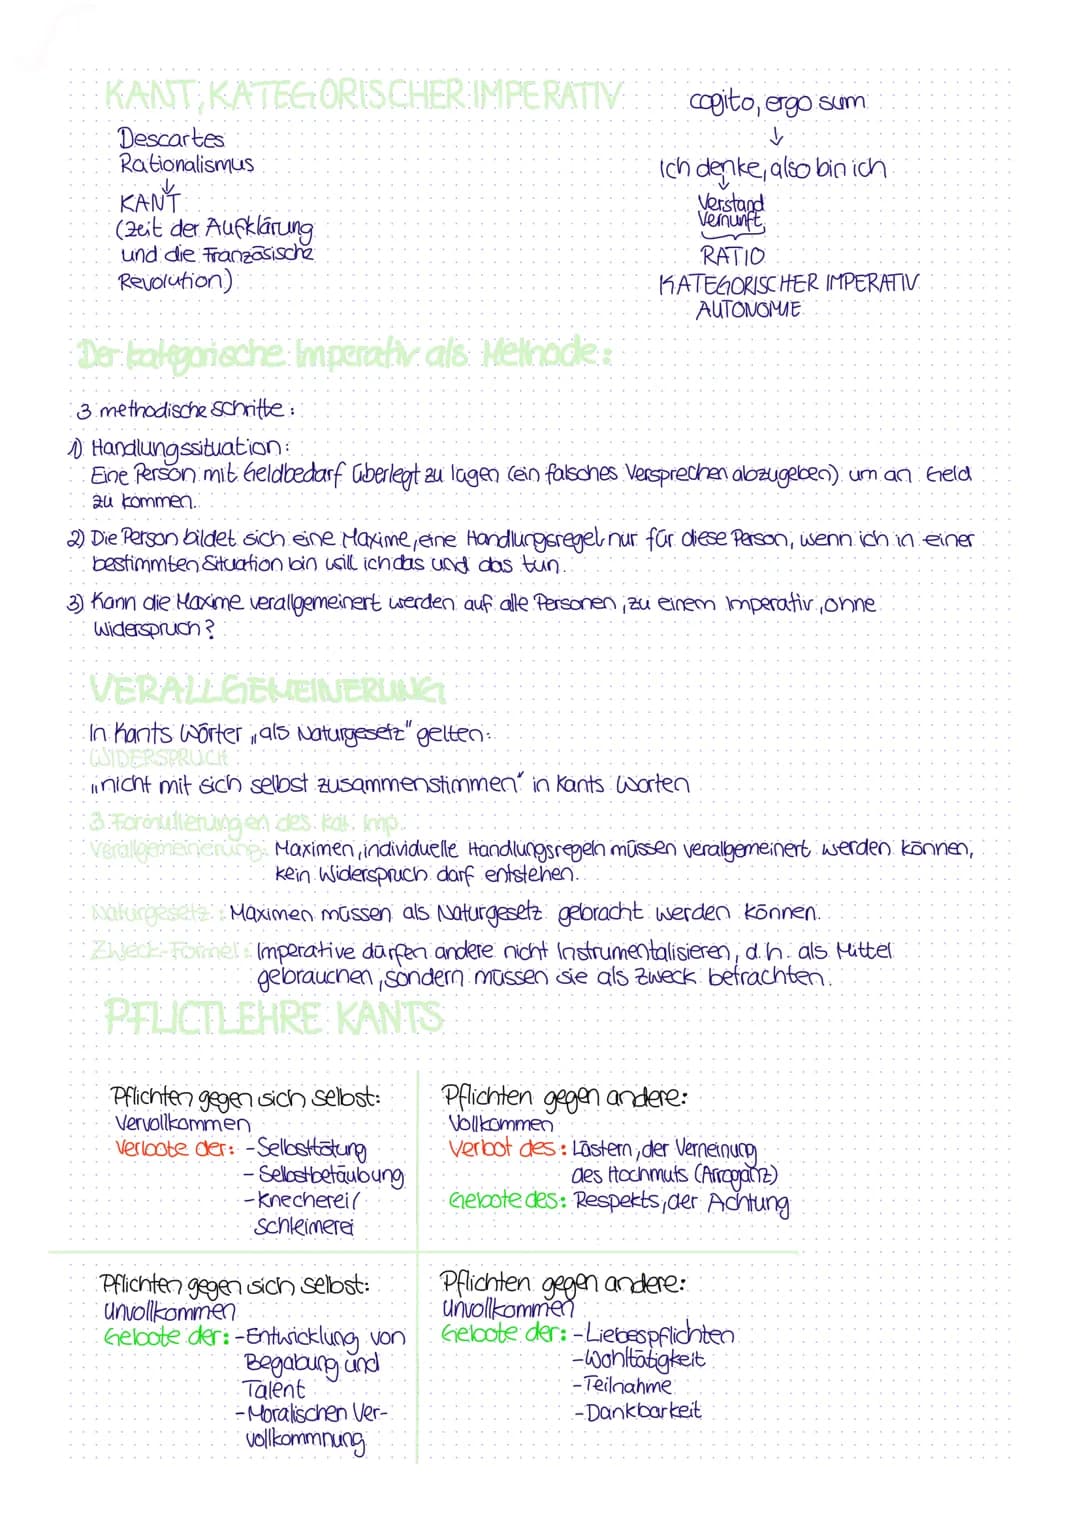 KANT, KATEGORISCHER IMPERATIV
Descartes
Rationalismus
↓
KANT
(Zeit der Aufklärung
und die Französische
Revolution)
cogito, ergo sum
↓
Ich denke, also bin ich
↓
Verstand
Vernunft
RATIO
KATEGORISCHER IMPERATIV
AUTONOMIE
Der kategorische Imperativ als Methode:
3 methodische Schritte:
1) Handlungssituation:
Eine Person mit Geldbedarf überlegt zu lügen (ein falsches Versprechen abzugeben) um an Geld
zu kommen.
2) Die Person bildet sich eine Maxime, eine Handlungsregel nur für diese Person, wenn ich in einer
bestimmten Situation bin will ich das und das tun.
3) Kann die Maxime verallgemeinert werden auf alle Personen, zu einem Imperativ, ohne
Widerspruch?
VERALLGEMEINERUNG
In Kants Wörter „als Naturgesetz" gelten.
WIDERSPRUCH
„nicht mit sich selbst zusammenstimmen" in Kants Worten
3 Formulierungen des kat. Imp.
Verallgemeinerung: Maximen, individuelle Handlungsregeln müssen veralgemeinert werden können,
kein Widerspruch darf entstehen.
Naturgesetz: Maximen müssen als Naturgesetz gebracht werden können.
Zweck-Formel: Imperative dürfen andere nicht Instrumentalisieren, d.h. als Mittel
gebrauchen, sondern müssen sie als Zweck betrachten.
PFLICTLEHRE KANTS
Pflichten gegen sich selbst:
Vervollkommen
Verbote der: - Selbsttötung
- Selbstbetäubung
- Knecherei/
Schleimerei
Pflichten gegen andere:
Vollkommen
Verbot des: Lästern, der Verneinung
des Hochmuts (Arroganz)
Gebote des: Respekts, der Achtung
Pflichten gegen sich selbst:
Unvollkommen
Gebote der: - Entwicklung von
Begabung und
Talent
- Moralischen Ver-
vollkommnung
Pflichten gegen andere:
Unvollkommen
Gebote der: - Liebespflichten
- Wohltätigkeit
- Teilnahme
- Dankbarkeit